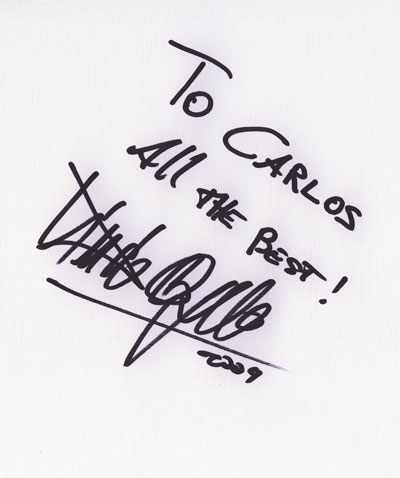 To CARLOS
All THE BEST!
2009